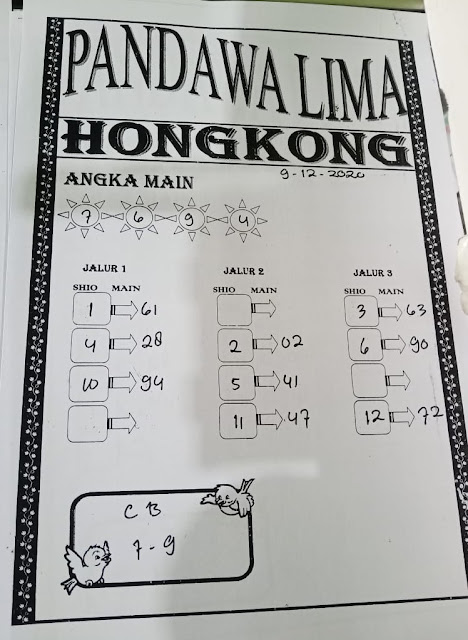 PANDAWA LIMA
HONGKONG
9-12-2020
ANGKA MAIN
7 6 9 4
JALUR 1
SHIO MAIN
1 61
4 28
10 94
JALUR 2
SHIO MAIN
2 02
5 41
11 47
JALUR 3
SHIO MAIN
3 63
6 90
12 72
C B
7-9